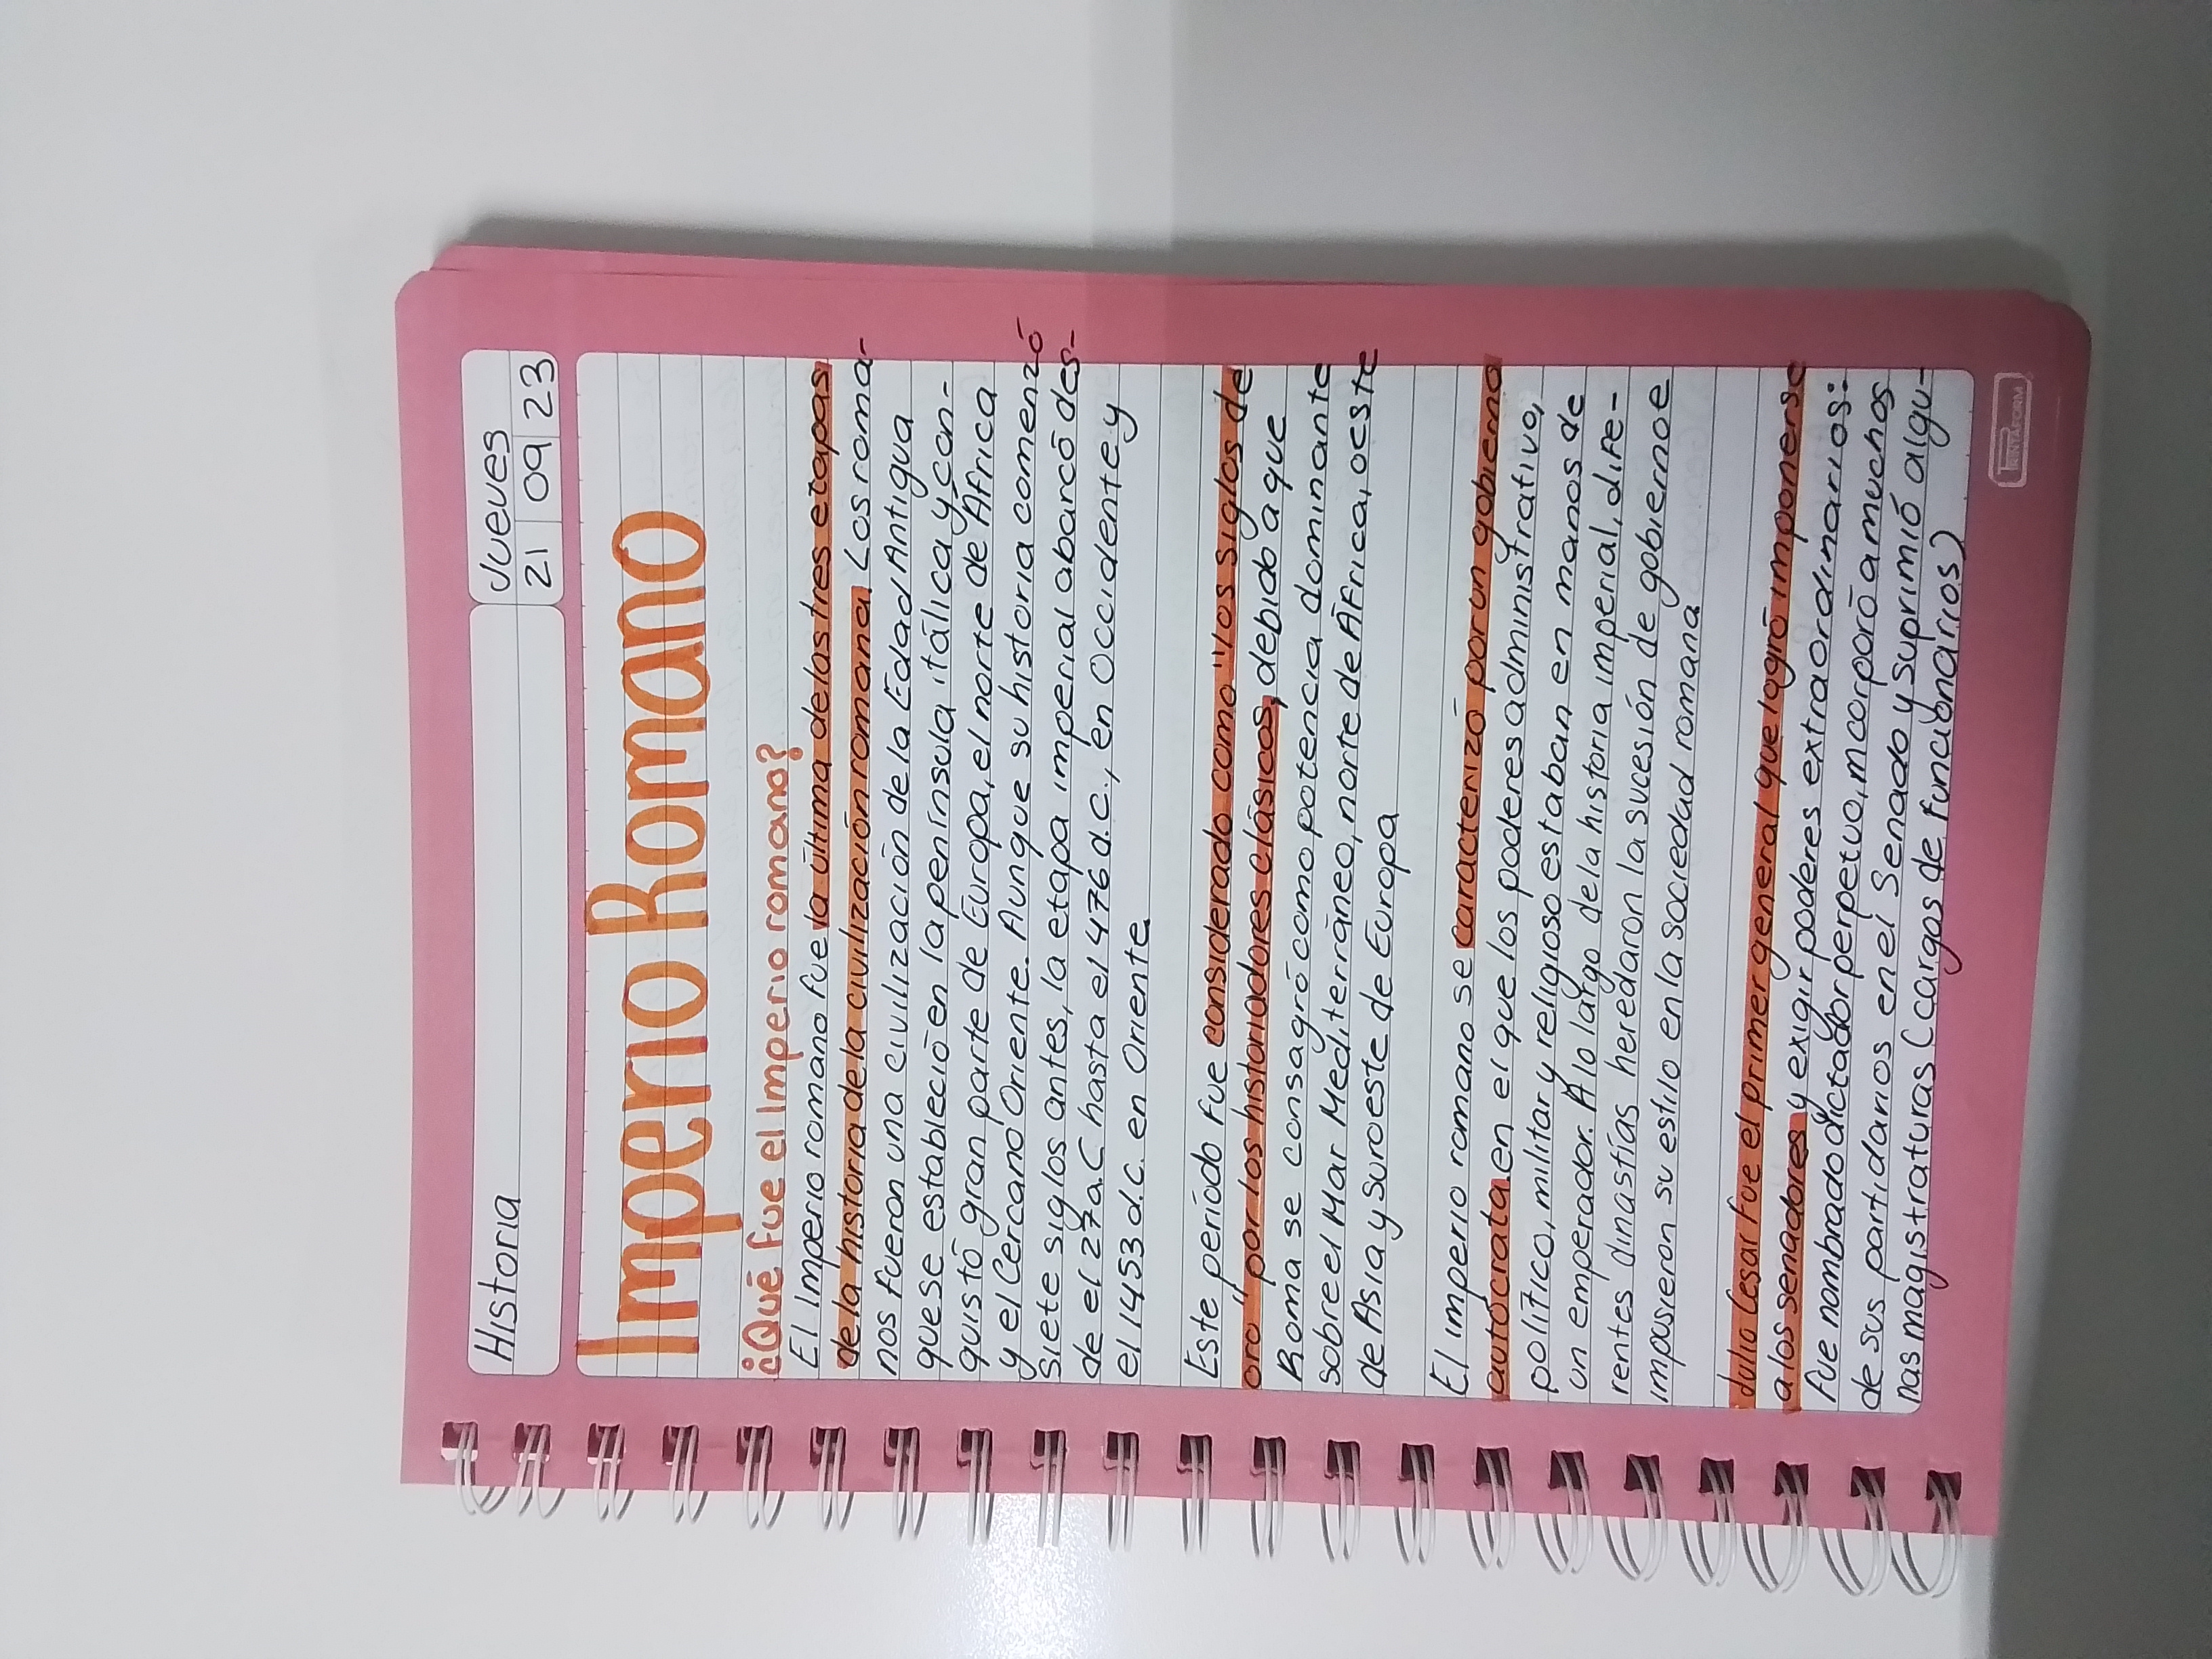 Historia
Jueves
21 09 23
Imperio Romano
¿Qué fue el Imperio romano?
El Imperio romano fue la última de las tres etapas
de la historia de la civilización romana. Los roma-
nos fueron una civilización de la Edad Antigua
que se estableció en la península itálica y con-
quistó gran parte de Europa, el norte de África
y el Cercano Oriente. Aunque su historia comenzó
siete siglos antes, la etapa imperial abarcó des-
de el 27 a.C hasta el 476 d.c., en Occidente y
el 1453 d.c. en Oriente.
Este período fue considerado como "los siglos de
oro" por los historiadores clásicos, debido a que
Roma se consagró como potencia dominante
sobre el Mar Mediterráneo, norte de África, oeste
de Asia y suroeste de Europa
El imperio romano se caracterizó por un gobierno
autócrata en el que los poderes administrativo,
político, militar y religioso estaban en manos de
un emperador. A lo largo de la historia imperial, dife-
rentes dinastías heredaron la sucesión de gobierno e
impusieron su estilo en la sociedad romana
Julio Cesar fue el primer general que logró imponerse
a los senadores y exigir poderes extraordinarios:
fue nombrado dictador perpetuo, incorporó a muchos
de sus partidarios en el Senado y suprimió algu-
nas magistraturas (cargos de funcionarios)
PRINTAFORM